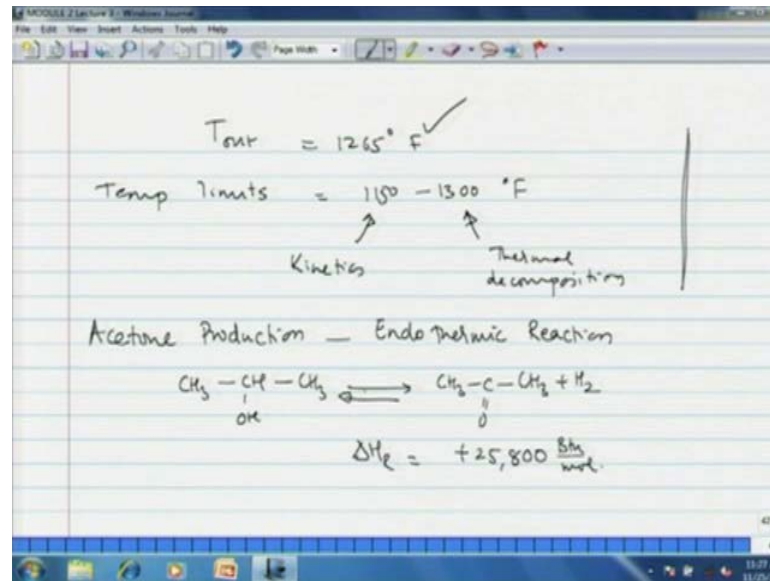 MODULE 2 Lecture 3 - Windows Journal
File Edit View Insert Actions Tools Help
Page Width
Tout = 1265° F ✓
Temp limits = 1150 - 1300 °F
Kinetics
Thermal decomposition
Acetone Production — Endothermic Reaction
CH3 - CH - CH3 ⇌ CH3 - C - CH3 + H2
OH O
ΔHR = +25,800 Btu/mol.
11:27